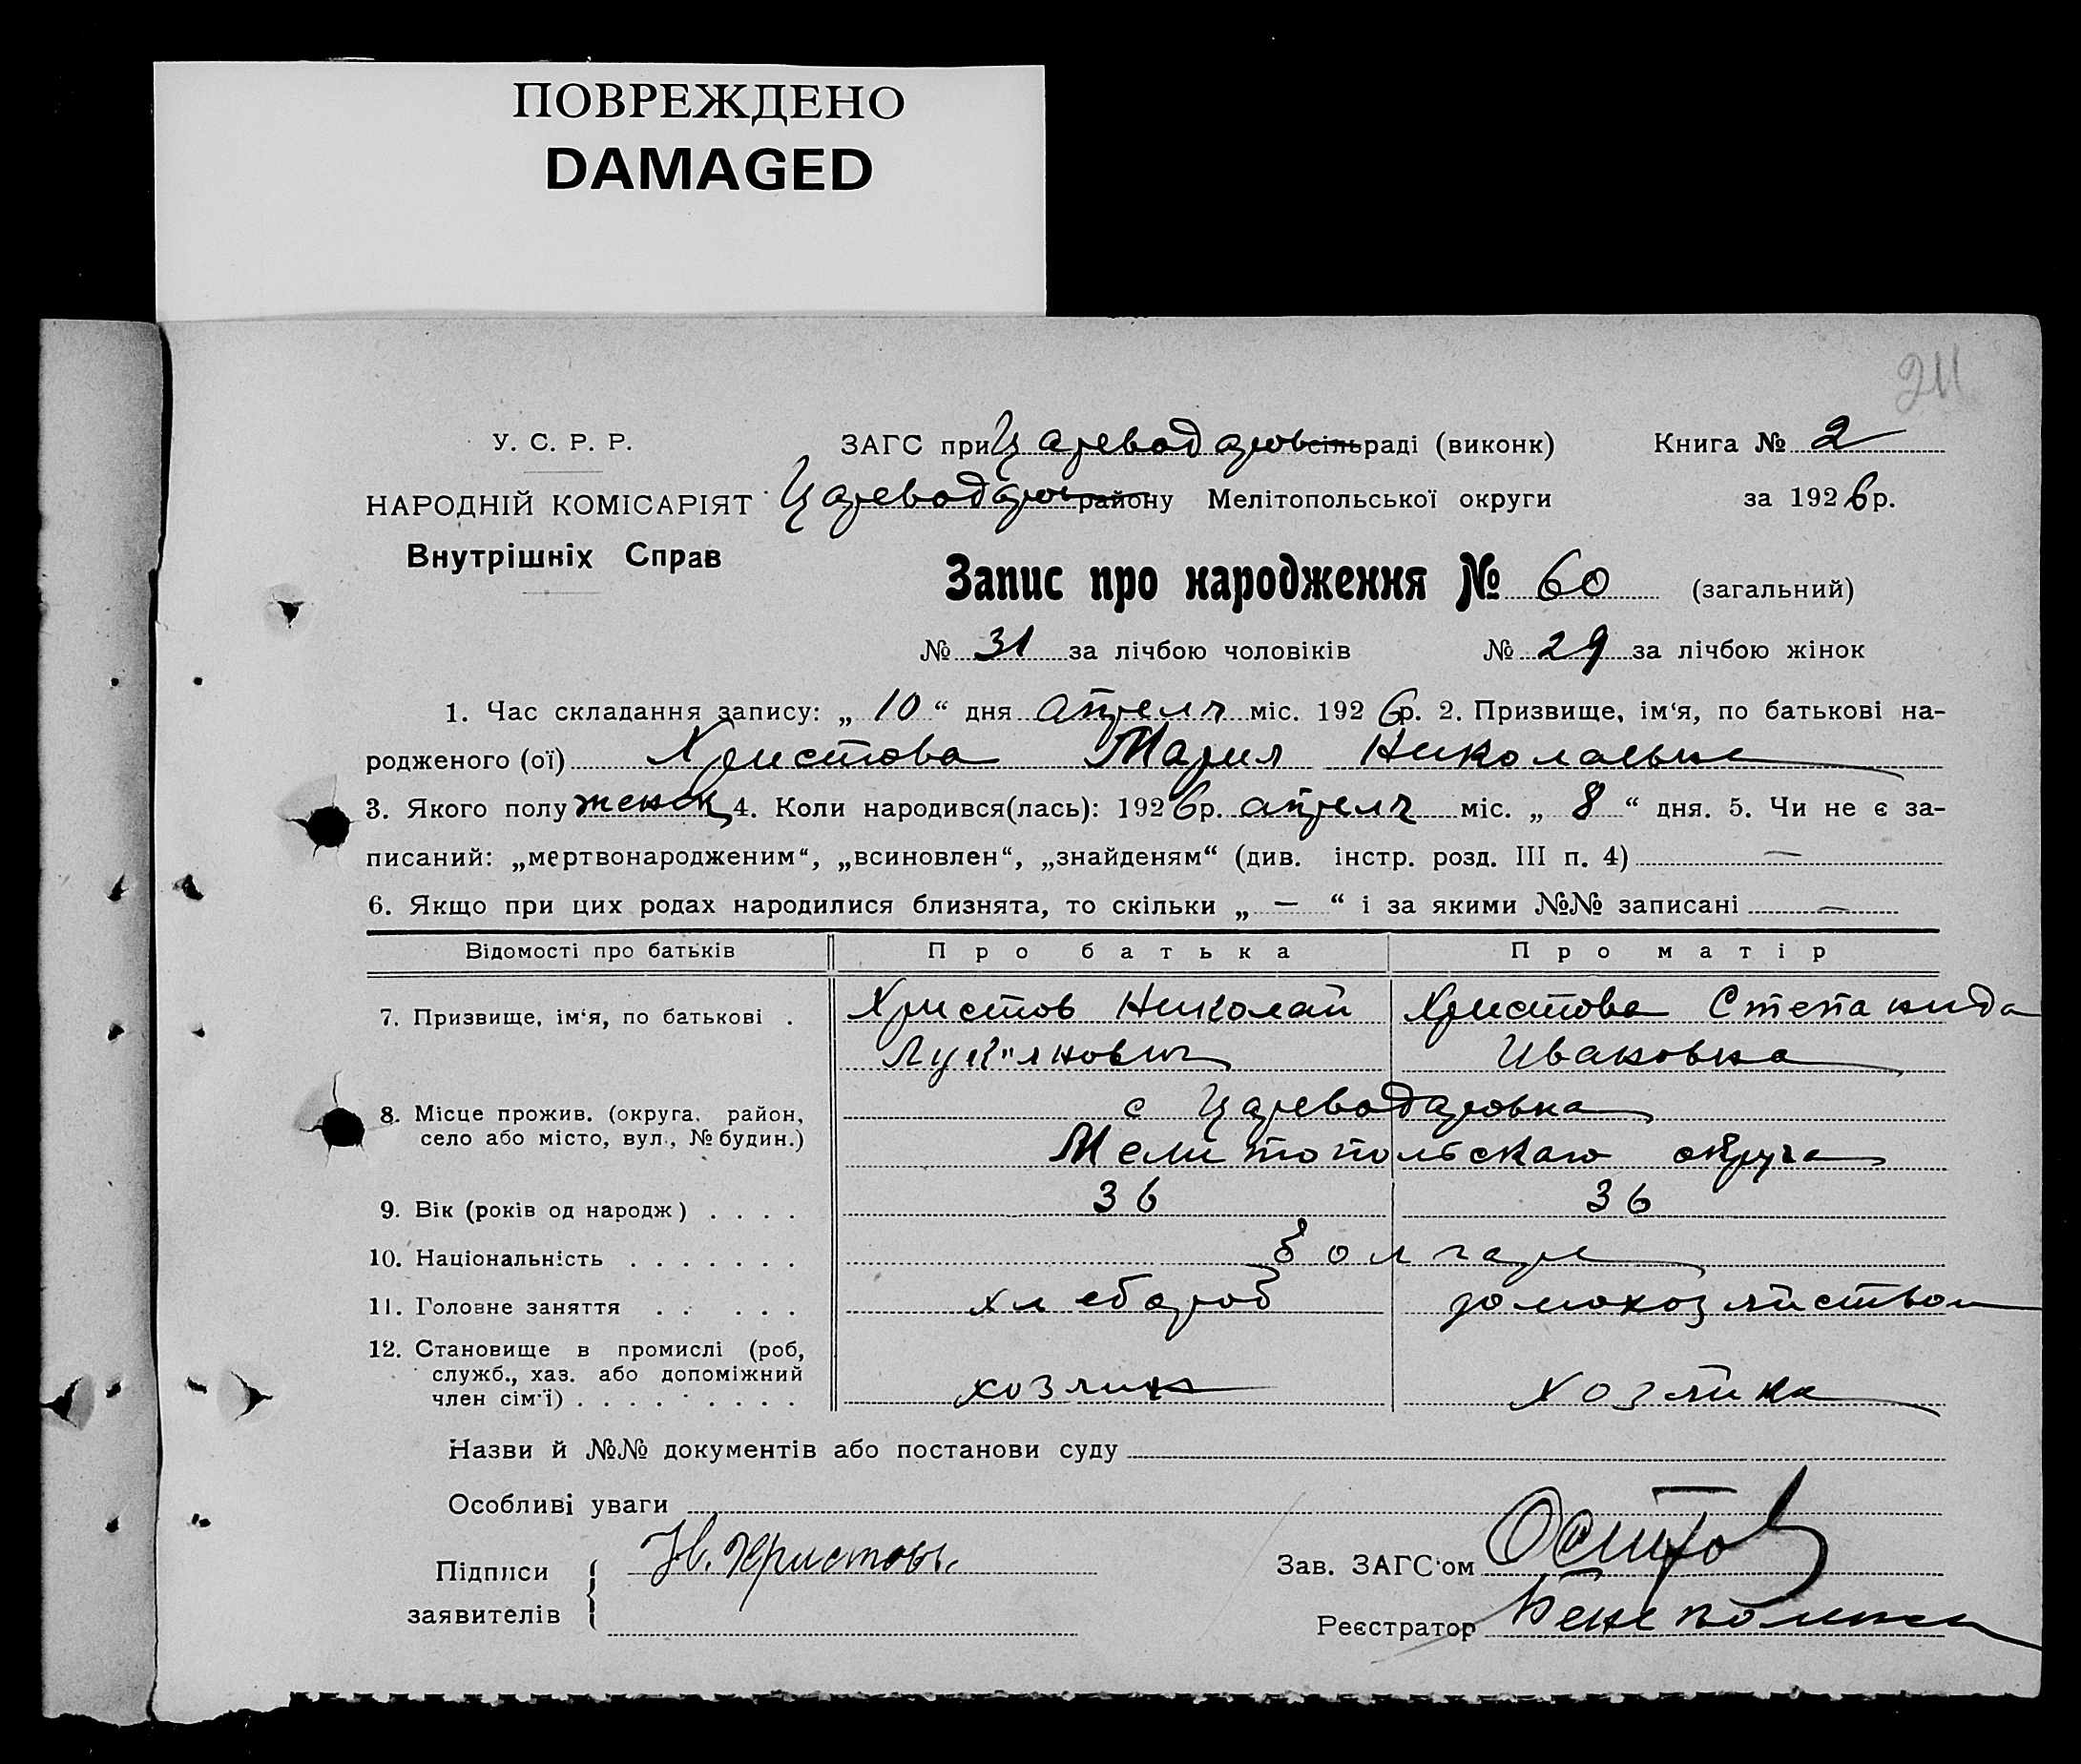 ПОВРЕЖДЕНО
DAMAGED
У. С. Р. Р. ЗАГС при Цареводаров сільраді (виконк) Книга № 2
НАРОДНІЙ КОМІСАРІЯТ Цареводаров району Мелітопольської округи за 1926 р.
Внутрішніх Справ
Запис про народження № 60 (загальний)
№ 31 за лічбою чоловіків № 29 за лічбою жінок
1. Час складання запису: „ 10 “ дня апреля міс. 1926 р. 2. Призвище, ім‘я, по батькові на-
родженого (ої) Христова Мария Николаевна
3. Якого полу женск 4. Коли народився(лась): 1926 р. апреля міс. „ 8 “ дня. 5. Чи не є за-
писаний: „мертвонародженим“, „всиновлен“, „знайденям“ (див. інстр. розд. III п. 4) —
6. Якщо при цих родах народилися близнята, то скільки „ — “ і за якими №№ записані —
Відомості про батьків Про батька Про матір
7. Призвище, ім‘я, по батькові . Христов Николай Христова Степанида
Лук"янович Ивановна
8. Місце прожив. (округа, район, с Цареводаровка
село або місто, вул., № будин.) Мелитопольскаго округа
9. Вік (років од народж) . . . . 36 36
10. Національність . . . . . . . болгаре
11. Головне заняття . . . . . хлебороб домохозяйством
12. Становище в промислі (роб,
служб., хаз. або допоміжний
член сім‘ї) . . . . . . . . хозяин хозяйка
Назви й №№ документів або постанови суду
Особливі уваги
Підписи Н. Христовъ Зав. ЗАГС‘ом Осипов
заявителів Реєстратор